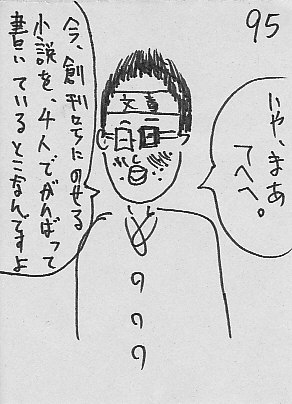 95
いや、まあ
てへへ。
今、創刊号にのせる
小説を、4人でがんばって
書いているとこなんですよ
文責